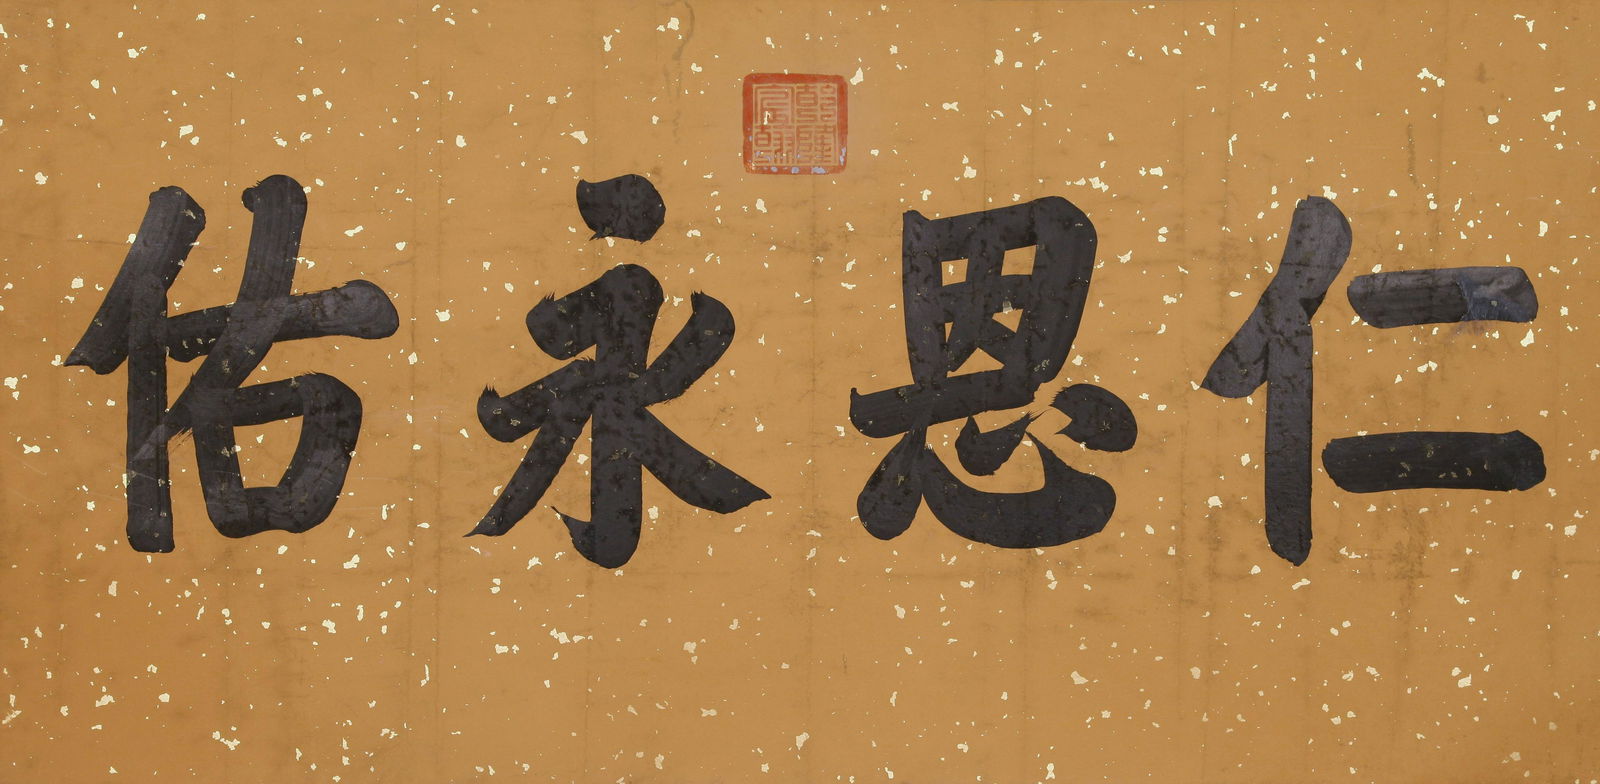 仁恩永佑
乾隆宸翰